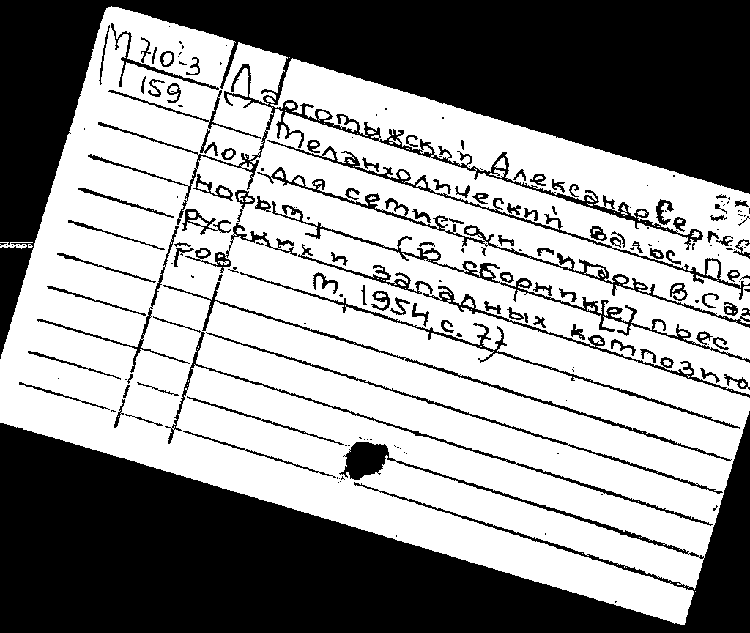 М 710-3
159
37
Даргомыжский, Александр Сергее
Меланхолический вальс. [Пер
лож. для семиструн. гитары В. Саз
нофым.] (В сборник[е] пьес
русских и западных композито
ров. М., 1954, с. 7)